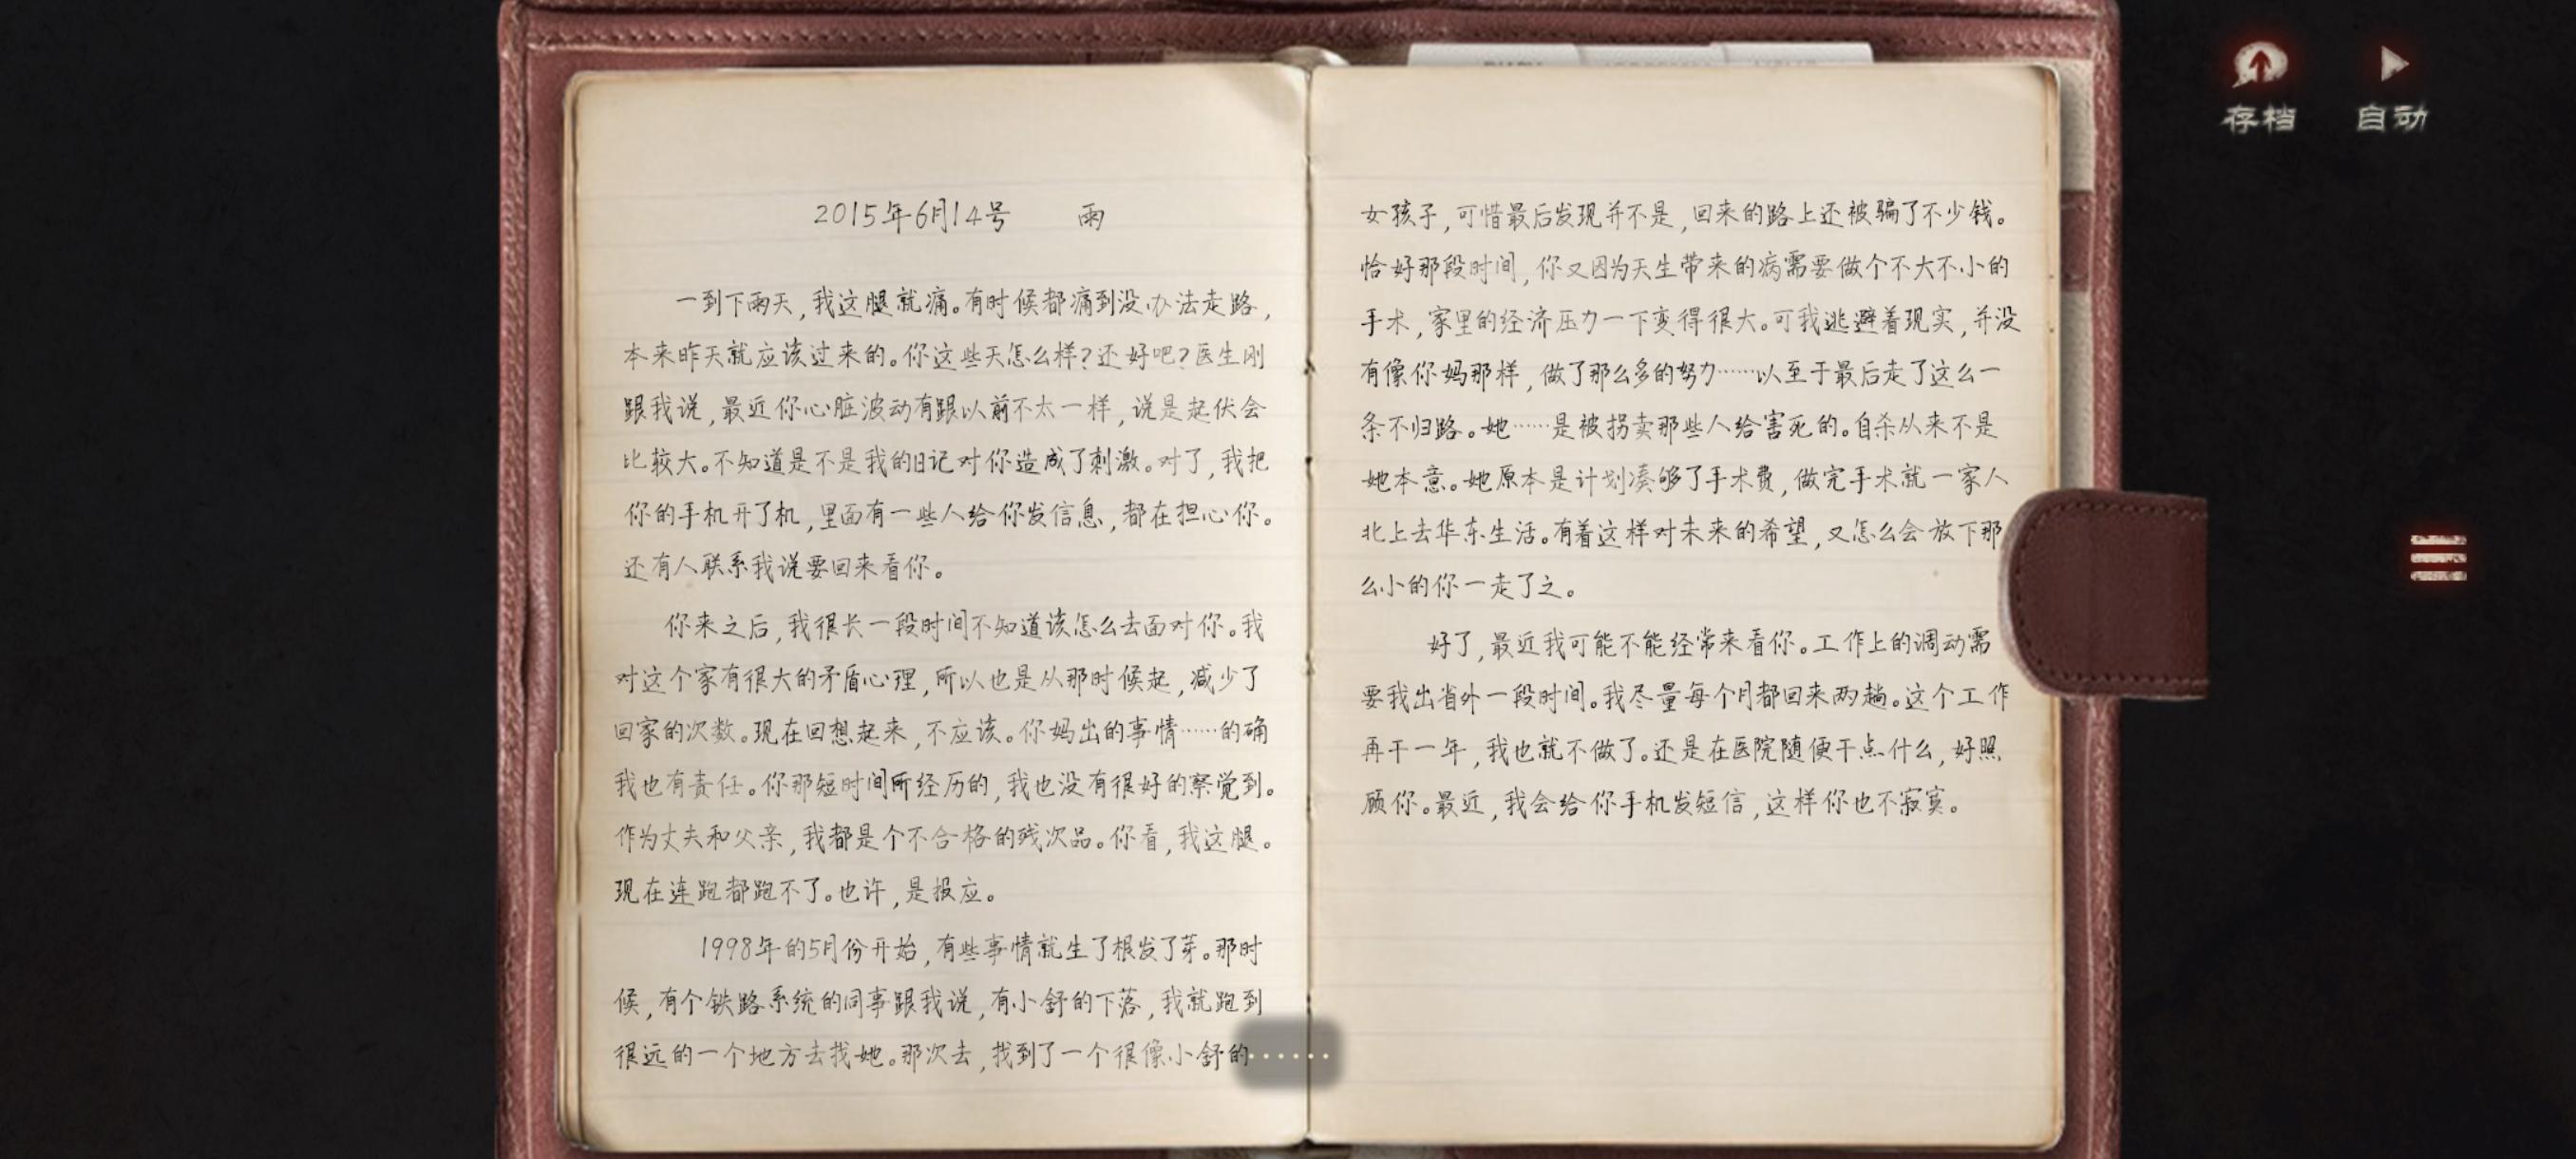 存档
自动
2015年6月14号 雨
一到下雨天,我这腿就痛。有时候都痛到没办法走路,
本来昨天就应该过来的。你这些天怎么样?还好吧?医生刚
跟我说,最近你心脏波动有跟以前不太一样,说是起伏会
比较大。不知道是不是我的日记对你造成了刺激。对了,我把
你的手机开了机,里面有一些人给你发信息,都在担心你。
还有人联系我说要回来看你。
你来之后,我很长一段时间不知道该怎么去面对你。我
对这个家有很大的矛盾心理,所以也是从那时候起,减少了
回家的次数。现在回想起来,不应该。你妈出的事情……的确
我也有责任。你那短时间所经历的,我也没有很好的察觉到。
作为丈夫和父亲,我都是个不合格的残次品。你看,我这腿。
现在连跑都跑不了。也许,是报应。
1998年的5月份开始,有些事情就生了根发了芽。那时
候,有个铁路系统的同事跟我说,有小舒的下落,我就跑到
很远的一个地方去找她。那次去,找到了一个很像小舒的
······
女孩子,可惜最后发现并不是,回来的路上还被骗了不少钱。
恰好那段时间,你又因为天生带来的病需要做个不大不小的
手术,家里的经济压力一下变得很大。可我逃避着现实,并没
有像你妈那样,做了那么多的努力……以至于最后走了这么一
条不归路。她……是被拐卖那些人给害死的。自杀从来不是
她本意。她原本是计划凑够了手术费,做完手术就一家人
北上去华东生活。有着这样对未来的希望,又怎么会放下那
么小的你一走了之。
好了,最近我可能不能经常来看你。工作上的调动需
要我出省外一段时间。我尽量每个月都回来两趟。这个工作
再干一年,我也就不做了。还是在医院随便干点什么,好照
顾你。最近,我会给你手机发短信,这样你也不寂寞。